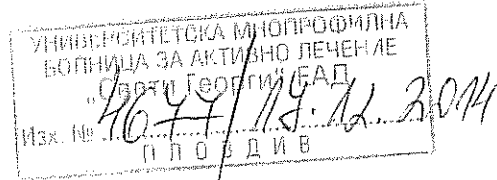 УНИВЕРСИТЕТСКА МНОГОПРОФИЛНА
БОЛНИЦА ЗА АКТИВНО ЛЕЧЕНИЕ
„Свети Георги“ ЕАД
Изх. № 4677 / 17.12.2014
ПЛОВДИВ